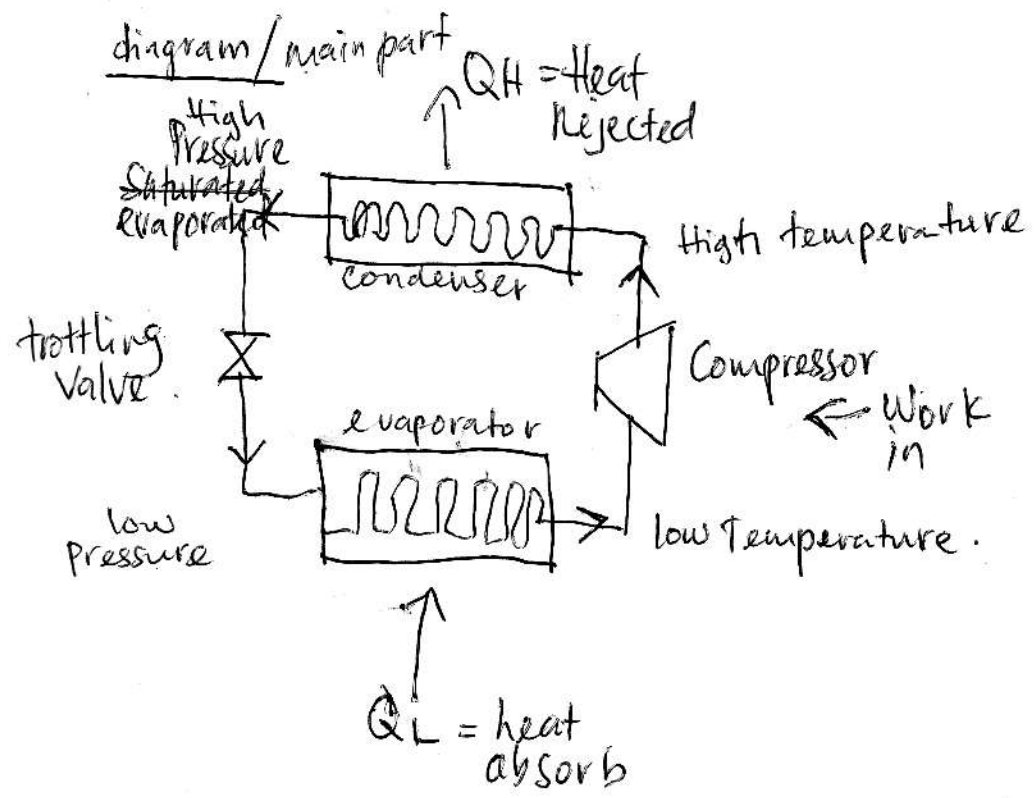 diagram/main part
QH = Heat
Rejected
High
Pressure
Saturated
evaporated
High temperature
condenser
trottling
valve.
Compressor
Work
in
evaporator
low
pressure
low Temperature.
QL = heat
absorb